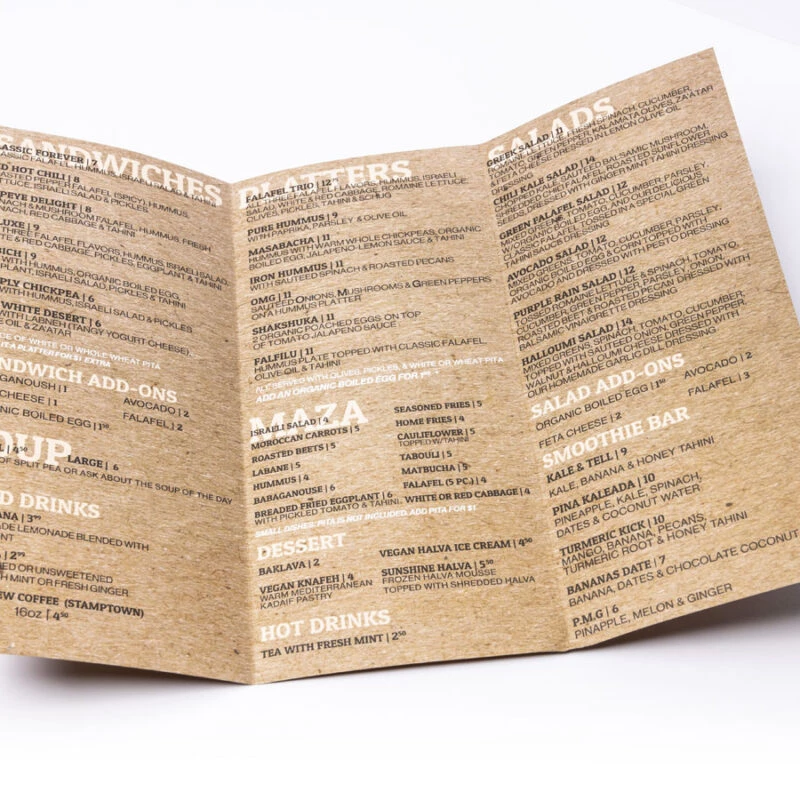 SANDWICHES
CLASSIC FOREVER | 7
CLASSIC FALAFEL, HUMMUS,
HOT CHILI | 8
ROASTED PEPPER FALAFEL (SPICY), HUMMUS,
LETTUCE, ISRAELI SALAD & PICKLES.
DELIGHT | 8
SPINACH & MUSHROOM FALAFEL, HUMMUS, FRESH
SPINACH, RED CABBAGE & TAHINI
| 9
THREE FALAFEL FLAVORS, HUMMUS, ISRAELI SALAD,
WHITE & RED CABBAGE, PICKLES, EGGPLANT & TAHINI
| 9
WITH HUMMUS, ORGANIC BOILED EGG,
ISRAELI SALAD, PICKLES & TAHINI
CHICKPEA | 6
WITH HUMMUS, ISRAELI SALAD & PICKLES
WHITE DESERT | 6
WITH LABNEH (TANGY YOGURT CHEESE),
OLIVE OIL & ZA'ATAR
OF WHITE OR WHOLE WHEAT PITA
A PLATTER FOR $1 EXTRA
SANDWICH ADD-ONS
BABAGANOUSH | 1
AVOCADO | 2
CHEESE | 1
FALAFEL | 2
ORGANIC BOILED EGG | 1⁵⁰
SOUP
| 4⁵⁰ LARGE | 6
OF SPLIT PEA OR ASK ABOUT THE SOUP OF THE DAY
DRINKS
| 3⁹⁹
LEMONADE BLENDED WITH
MINT
| 2⁹⁹
OR UNSWEETENED
FRESH MINT OR FRESH GINGER
BREW COFFEE (STAMPTOWN)
16oz | 4⁵⁰
PLATTERS
FALAFEL TRIO | 12⁹⁹
ALL THREE FALAFEL FLAVORS, HUMMUS, ISRAELI
SALAD, WHITE & RED CABBAGE, ROMAINE LETTUCE
OLIVES, PICKLES, TAHINI & SCHUG
PURE HUMMUS | 9
WITH PAPRIKA, PARSLEY & OLIVE OIL
MASABACHA | 11
HUMMUS WITH WARM WHOLE CHICKPEAS, ORGANIC
BOILED EGG, JALAPENO-LEMON SAUCE & TAHINI
IRON HUMMUS | 11
WITH SAUTEED SPINACH & ROASTED PECANS
OMG | 11
SAUTEED ONIONS, MUSHROOMS & GREEN PEPPERS
ON A HUMMUS PLATTER
SHAKSHUKA | 11
2 ORGANIC POACHED EGGS ON TOP
OF TOMATO-JALAPENO SAUCE
FALFILU | 11
HUMMUS PLATE TOPPED WITH CLASSIC FALAFEL,
OLIVE OIL & TAHINI
ALL SERVED WITH OLIVES, PICKLES, & WHITE OR WHEAT PITA
ADD AN ORGANIC BOILED EGG FOR 1⁵⁰
MAZA
ISRAELI SALAD | 4
MOROCCAN CARROTS | 5
ROASTED BEETS | 5
LABANE | 5
HUMMUS | 4
BABAGANOUSE | 6
BREADED FRIED EGGPLANT | 6
WITH PICKLED TOMATO & TAHINI
SEASONED FRIES | 5
HOME FRIES | 4
CAULIFLOWER | 5
TOPPED W/TAHINI
TABOULI | 5
MATBUCHA | 5
FALAFEL (5 PC.) | 4
WHITE OR RED CABBAGE | 4
SMALL DISHES: PITA IS NOT INCLUDED, ADD PITA FOR $1
DESSERT
BAKLAVA | 2
VEGAN KNAFEH | 4
WARM MEDITERRANEAN
KADAIF PASTRY
VEGAN HALVA ICE CREAM | 4⁵⁰
SUNSHINE HALVA | 5⁵⁰
FROZEN HALVA MOUSSE
TOPPED WITH SHREDDED HALVA
HOT DRINKS
TEA WITH FRESH MINT | 2⁵⁰
SALADS
GREEK SALAD | 11
LETTUCE, FRESH SPINACH, CUCUMBER,
TOMATO, GREEN PEPPER, KALAMATA OLIVES, ZA'ATAR
& FETA CHEESE DRESSED IN LEMON OLIVE OIL
CHILI KALE SALAD | 14
SHREDDED KALE, SAUTEED BALSAMIC MUSHROOM,
RED PEPPER FALAFEL, ROASTED SUNFLOWER
SEEDS DRESSED WITH GINGER MINT TAHINI DRESSING
GREEN FALAFEL SALAD | 12
MIXED GREENS, TOMATO, CUCUMBER, PARSLEY,
ORGANIC BOILED EGG, AND OUR DELICIOUS
CLASSIC FALAFEL, TOSSED IN A SPECIAL GREEN
TAHINI SAUCE DRESSING
AVOCADO SALAD | 12
MIXED GREENS, TOMATO, CUCUMBER, PARSLEY,
ORGANIC BOILED EGG & CORN TOPPED WITH
AVOCADO AND DRESSED WITH PESTO DRESSING
PURPLE RAIN SALAD | 12
ROMAINE LETTUCE & SPINACH, TOMATO,
CUCUMBER, GREEN PEPPER, PARSLEY, ONION,
ROASTED BEET & ROASTED PECAN DRESSED WITH
BALSAMIC VINAIGRETTE DRESSING
HALLOUMI SALAD | 14
MIXED GREENS, SPINACH, TOMATO, CUCUMBER,
TOPPED WITH SAUTEED ONION, GREEN PEPPER,
WALNUT & HALLOUMI CHEESE DRESSED WITH
OUR HOMEMADE GARLIC DILL DRESSING
SALAD ADD-ONS
ORGANIC BOILED EGG | 1⁵⁰
AVOCADO | 2
FETA CHEESE | 2
FALAFEL | 3
SMOOTHIE BAR
KALE & TELL | 9
KALE, BANANA & HONEY TAHINI
PINA KALEADA | 10
PINEAPPLE, KALE, SPINACH,
DATES & COCONUT WATER
TURMERIC KICK | 10
MANGO, BANANA, PECANS,
TURMERIC ROOT & HONEY TAHINI
BANANAS DATE | 7
BANANA, DATES & CHOCOLATE COCONUT
P.M.G | 6
PINAPPLE, MELON & GINGER